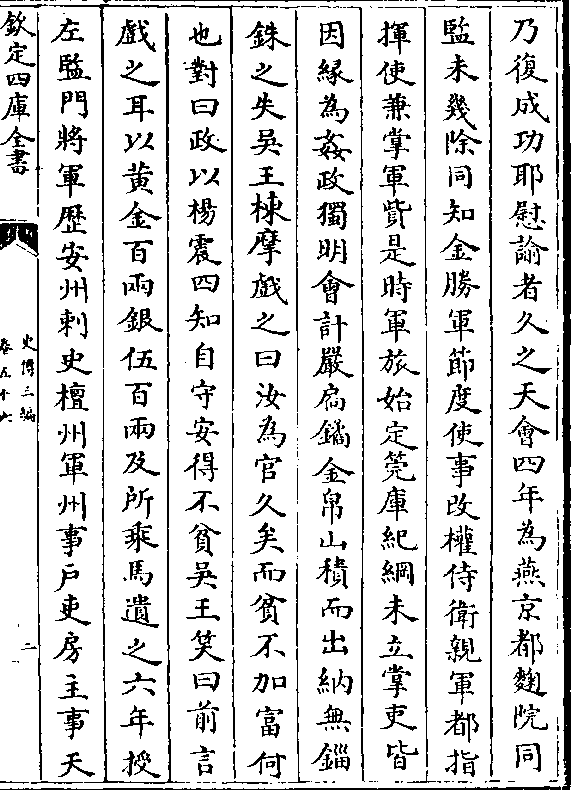 乃復成功耶慰諭者久之天會四年為燕京都麴院同
監未幾除同知金勝軍節度使事改權侍衛親軍都指
揮使兼掌軍貲是時軍旅始定筦庫紀綱未立掌吏皆
因緣為姦政獨明會計嚴扃鐍金帛山積而出納無錙
銖之失吳王棟摩戲之曰汝為官久矣而貧不加富何
也對曰政以楊震四知自守安得不貧吳王笑曰前言
戲之耳以黃金百兩銀伍百兩及所乘馬遺之六年授
左監門將軍歷安州刺史檀州軍州事户吏房主事天
欽定四庫全書
史傳三編
卷五十六
二